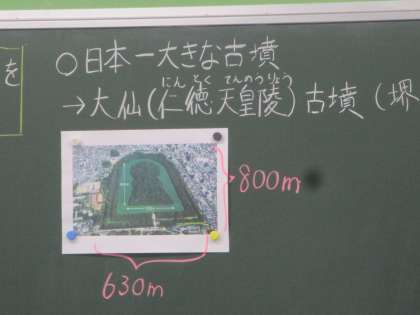 を
○日本一大きな古墳
にんとく てんのうりょう
→大仙(仁徳天皇陵)古墳(堺
800m
630m